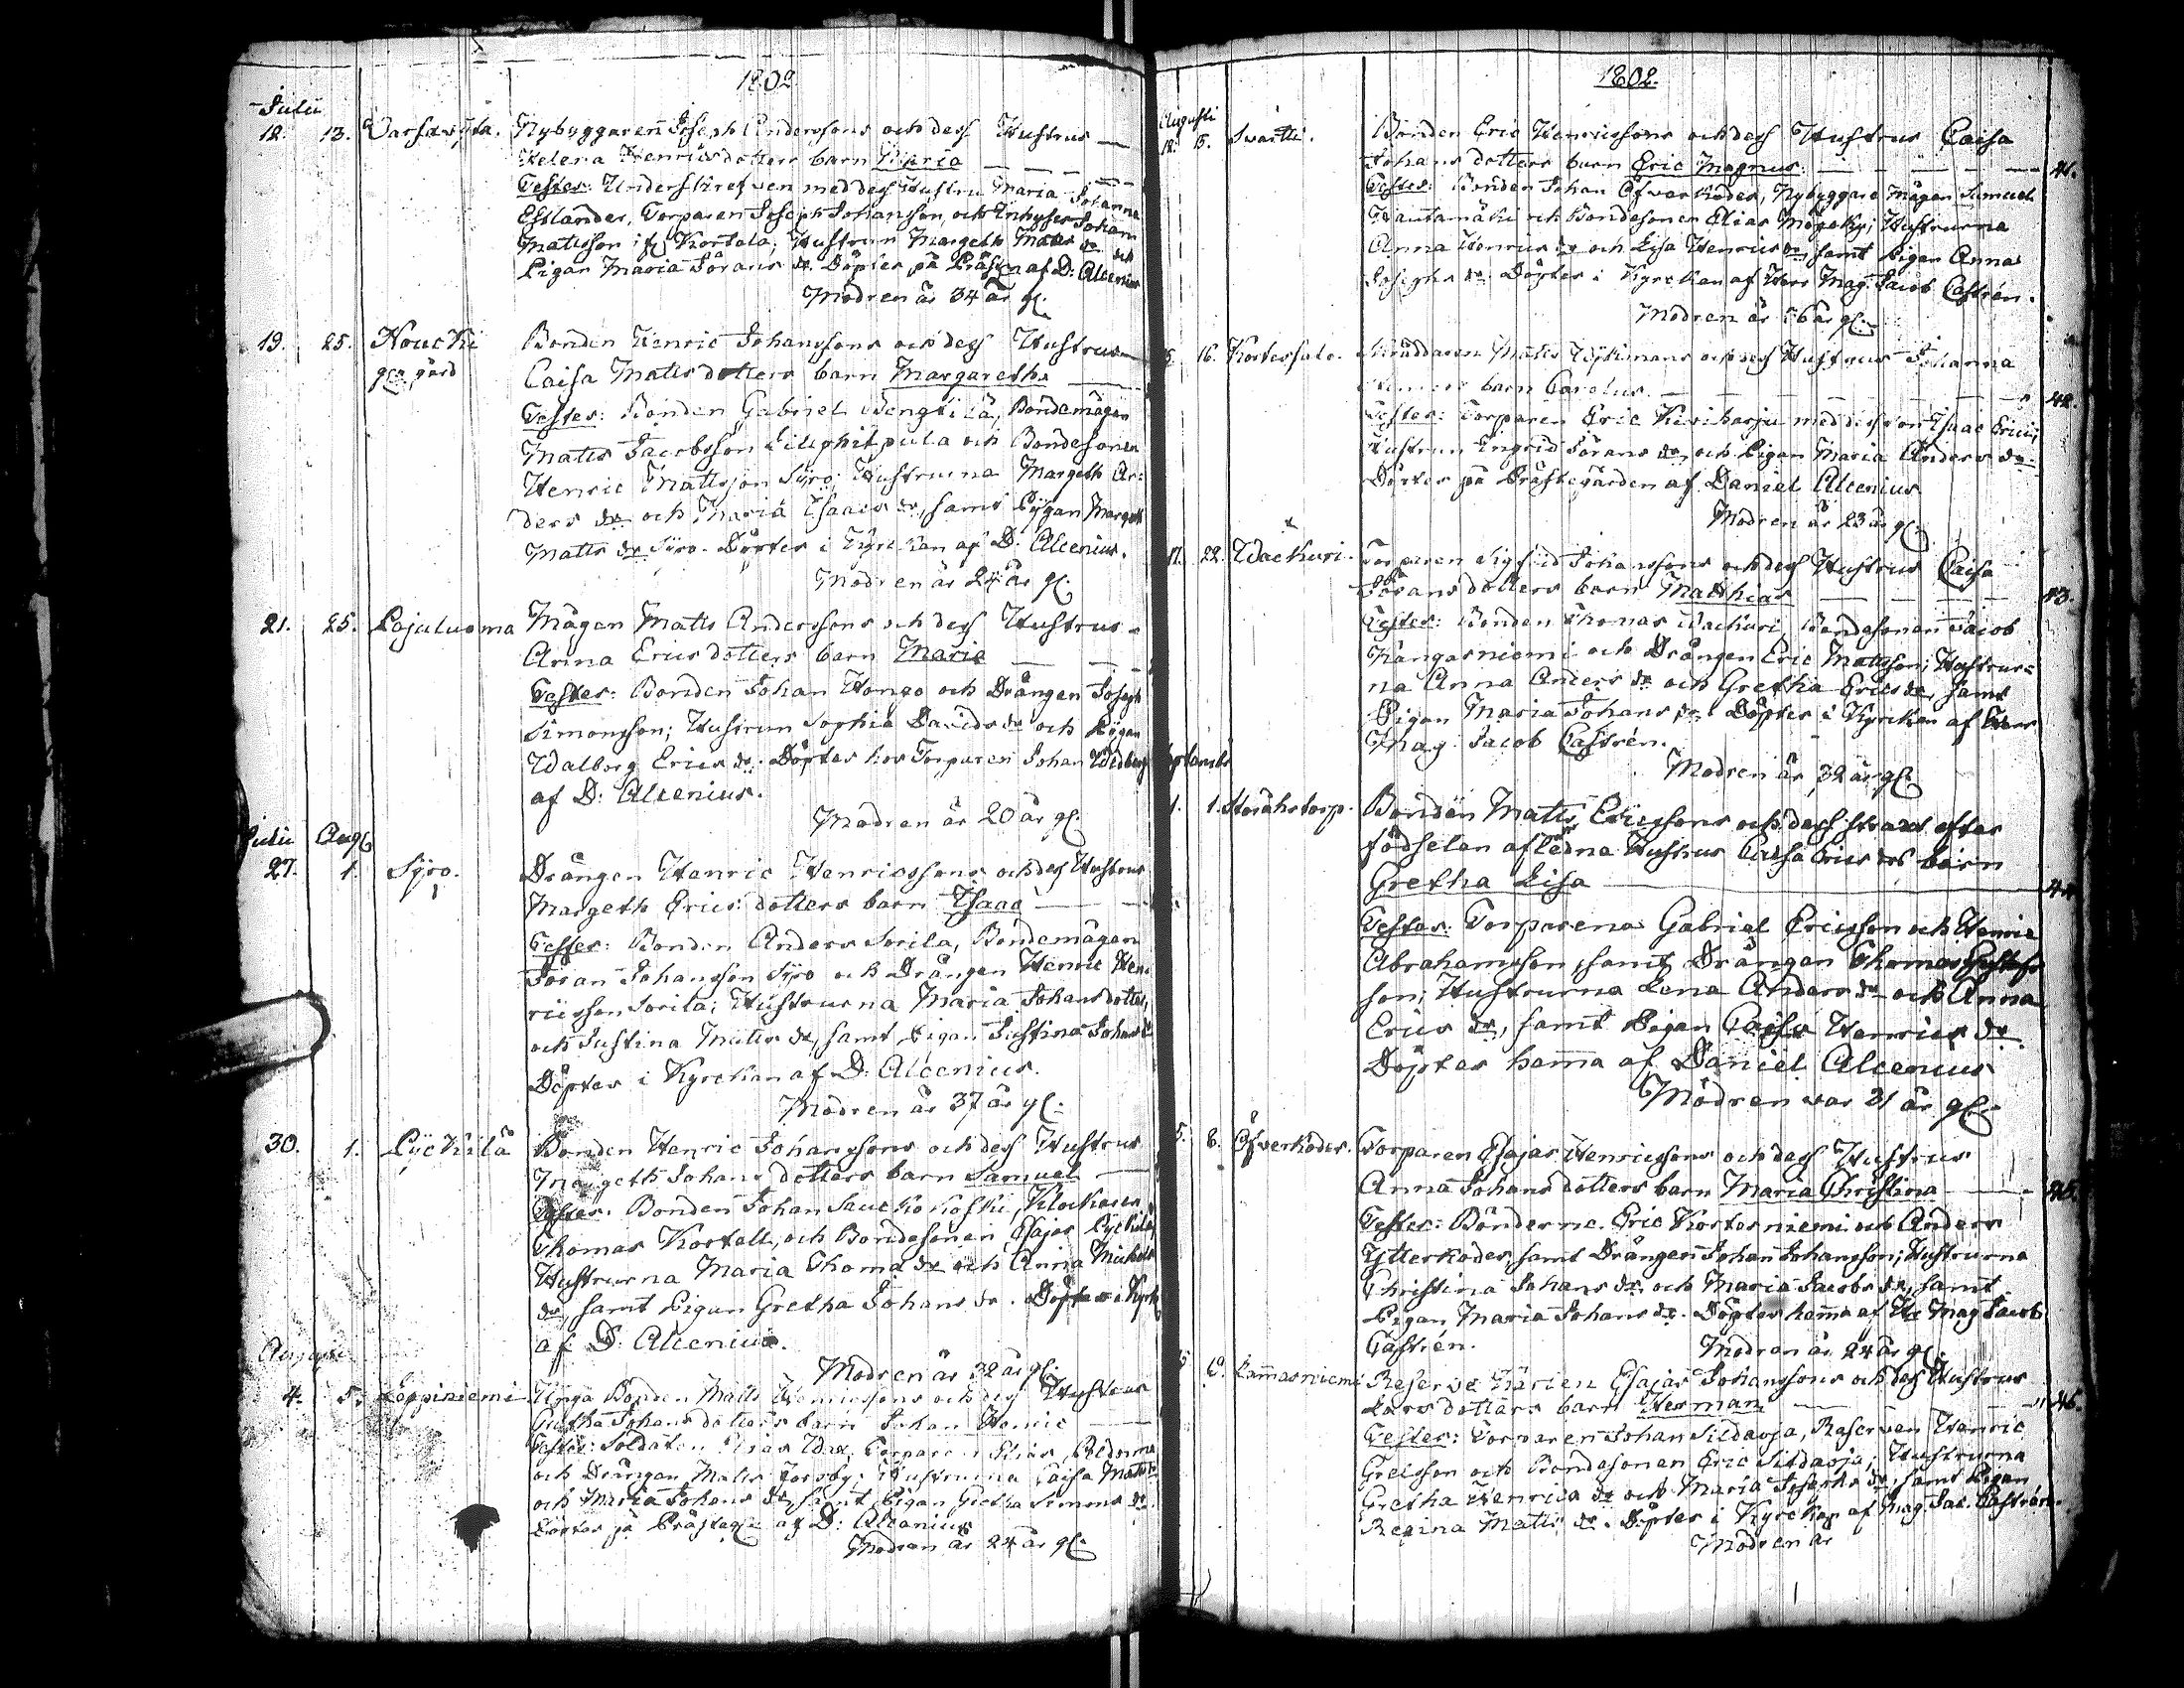 1802
Julii
12. 13. Varsasyta. Nybyggaren Joseph Anderssons och dess Hustrus
Helena Henricsdotters barn Maria
Testes: Underskrefven med dess Hustru Maria Johanna
Estlander, Torparen Joseph Johansson, och Inhyses Johan
Matisson ifr. Kortela; Hustrun Margeth Mats dr och
Pigan Maria Jörans dr. Döptes på Prästg. af D: Alcenius
Modren är 34 år gl.
19. 25. Koucki Bonden Henric Johanssons och dess Hustrus
gla gård Caisa Matis dotters barn Margaretha
Testes: Bonden Gabriel Bengtilä, Bondemågen
Matts Jacobsson Lillphilpula och Bondesonen
Henric Mattsson Syro; Hustruna Margeth An-
ders dr och Maria Isaacs dr, samt Pygan Margeth
Matts dr Syro. Döptes i Kyrckan af D. Alcenius.
Modren är 24 år gl.
21. 25. Pajuluoma Mågen Matts Anderssons och dess Hustrus
Anna Erics dotters barn Maria
Testes: Bonden Johan Hongo och Drängen Joseph
Simonsson; Hustrun Sophia Davids dr och Pigan
Walborg Erics dr. Döptes hos Torparen Johan Wedberg
af D: Alcenius.
Modren är 20 år gl.
Julii Aug.
27. 1. Syro. Drängen Henric Henricssons och dess Hustrus
Margeth Erics dotters barn Isaac
Testes: Bonden Anders Sorila, Bondemågen
Jöran Johansson Syro och Drängen Henric Hen-
ricsson Sorila; Hustruna Maria Johansdotter,
och Justina Matts dr, samt Pigan Justina Johans dr
Döptes i Kyrckan af D: Alcenius.
Modren är 37 år gl.
30. 1. Lyckilä Bonden Henric Johanssons och dess Hustrus
Margeth Johans dotters barn Samuel
Testes. Bonden Johan Sauckokoski, Klockaren
Thomas Kortell, och Bondesonen Esajas Lyckilä,
Hustruna Maria Thomæ dr och Anna Michels
dr, samt Pigan Gretha Johans dr. Döptes i Kyrk.
af D. Alcenius.
Modren är 32 år gl.
Augusti
4. 5. Loppiniemi Unga Bonden Matts Henricssons och dess Hustrus
Gretha Johans dotters barn Johan Henric
Testes: Soldaten Elias Wax, Torparen Elias
och Drängen Matts Forsby; Hustruna Caisa Matts dr
och Maria Johans dr, samt Pigan Gretha Simons dr.
Döptes på Prästeg. af D: Alcenius
Modren är 24 år gl.
1802.
Augusti
12. 15. Svartti. Bonden Eric Henricssons och dess Hustrus Caisa
Johans dotters barn Eric Magnus. 41.
Testes: Bonden Johan Öfverköder, Nybyggare Mågen Samuel
Rautamäki och Bondesonen Elias Mögeky; Hustrurna
Anna Henrics dr och Lisa Henrics dr samt Pigan Anna
Josephs dr. Döptes i Kyrckan af Herr Mag. Jacob Castrén.
Modren är 36 år gl.
15. 16. Kortessalo. Skräddaren Matts Töykimans och dess Hustrus Johanna
barn Carolus. 42.
Testes: Torparen Eric Kiviharju med dess son Isaac Ericss.,
Hustrun Engrid Jörans dr, och Pigan Maria Anders dr.
Döptes på Prästegården af Daniel Alcenius
Modren är 23 år gl.
17. 22. Wackuri. Torparen Sigfrid Johanssons och dess Hustrus Caisa
Jörans dotters barn Matthias 43.
Testes: Bonden Thomas Wackuri Bondesonen Jacob
Kangasniemi och Drängen Eric Mattsson; Hustrur-
na Anna Anders dr och Gretha Erics dr, samt
Pigan Maria Johans dr. Döptes i Kyrckan af Herr
Mag. Jacob Castrén.
Modren är 32 år gl.
Septembr.
1. 1. Storåhstorp. Bonden Matts Ericssons och dess straxt efter
födselen aflédna Hustrus Caisa Erics drs barn
Gretha Lisa 44.
Testes: Torparena Gabriel Ericsson och Henric
Abrahamsson, samt Drängen Thomas Gustafs-
son; Hustrurna Lena Anders dr och Anna
Erics dr, samt Pigan Caisa Henrics dr
Döptes hema af Daniel Alcenius
Modren var 31 år gl.
5. 6. Öfverköder. Torparen Esajas Henricssons och dess Hustrus
Anna Johans dotters barn Maria Christina 45.
Testes: Bönderne. Eric Kortesniemi och Anders
Ytterköder, samt Drängen Johan Johansson; Hustrurna
Christina Johans dr och Maria Jacobs dr, samt
Pigan Maria Johans dr. Döptes hema af Hr Mag Jacob
Castrén. Modren är 24 år gl.
5. 6. Lammasniemi Reserve Karlen Esajas Johanssons och dess Hustrus
Lars dotters barn Herman 46.
Testes: Torparen Johan Sildaoja, Reserven Henric
Grelsson och Bondesonen Eric Sildaoja; Hustrurna
Gretha Henrics dr och Maria Josephs dr, samt Pigan
Regina Matts dr. Döptes i Kyrckan af Mag. Jac. Castrén.
Modren är